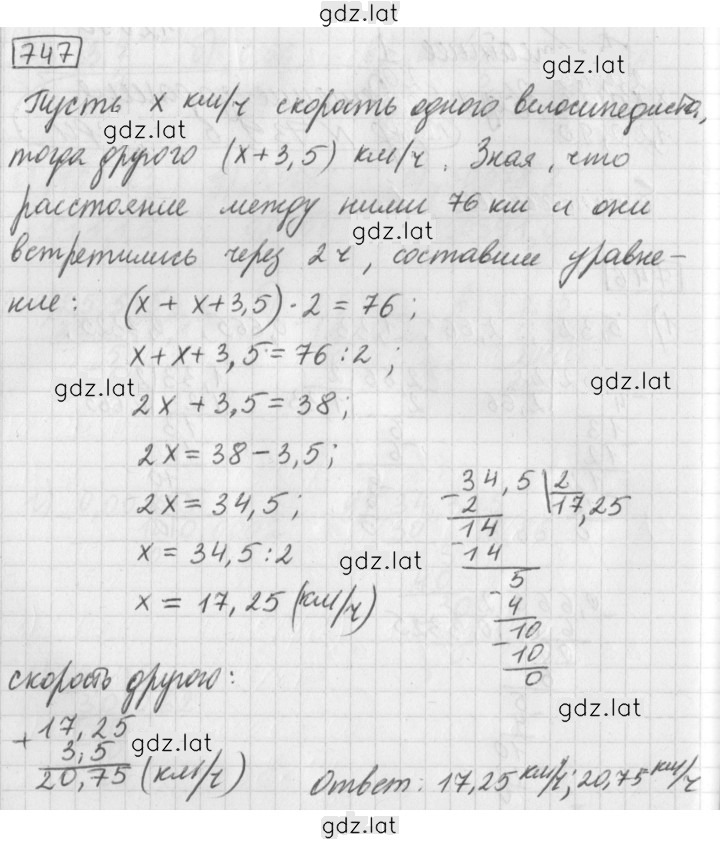 gdz.lat
747
gdz.lat
Пусть x км/ч скорость одного велосипедиста,
gdz.lat
тогда другого (x+3,5) км/ч. Зная, что
расстояние между ними 76 км и они
gdz.lat
встретились через 2 ч, составим уравне-
ние: (x + x+3,5)·2 = 76;
x+x+3,5=76:2;
gdz.lat
gdz.lat
2x+3,5=38;
2x=38-3,5;
2x=34,5;
x = 34,5:2
gdz.lat
x = 17,25 (км/ч)
- 34,5 2
2 17,25
14
- 14
5
- 4
10
- 10
0
скорость другого:
gdz.lat
+ 17,25
gdz.lat
3,5
20,75 (км/ч)
Ответ: 17,25 км/ч; 20,75 км/ч
gdz.lat